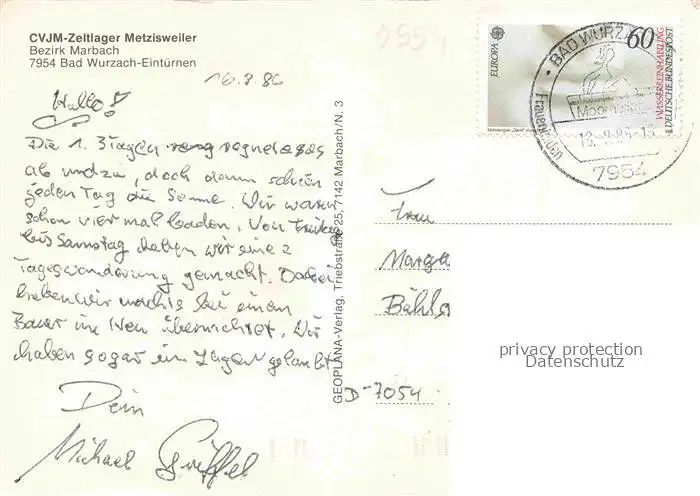 CVJM-Zeltlager Metzisweiler
Bezirk Marbach
7954 Bad Wurzach-Eintürnen
1954
16.8.86
Hallo!
Die 1. 3 Tagen regnete es
ab und zu, doch dann schien
jeden Tag die Sonne. Wir waren
schon vier mal baden. Von
bis Samstag haben wir eine 2
Tageswanderung gemacht. Dabei
haben wir nachts bei einem
Bauer im Heu übernachtet. Wir
haben sogar ein Lager gelaubt
Dein
Michael Griffel
GEOPLANA-Verlag, Triebstraße 25, 7142 Marbach/N. 3
EUROPA
60
WASSERREINHALTUNG
DEUTSCHE BUNDESPOST
BAD WURZACH
7954
Frau
Marga
Bühl
D-7054
privacy protection
Datenschutz